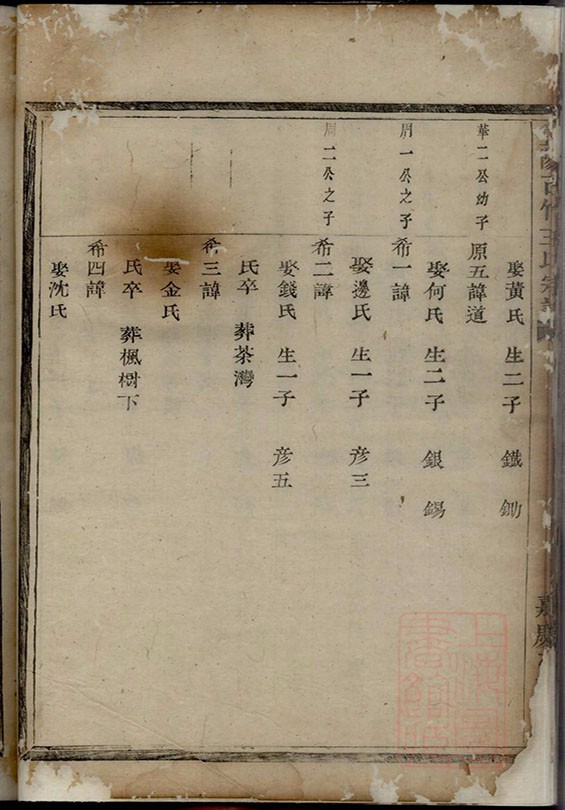 娶黃氏 生二子 鐵 鋤
華二公幼子
原五諱道
娶何氏 生二子 銀 錫
周一公之子
希一諱
娶邊氏 生一子 彦三
周二公之子
希二諱
娶錢氏 生一子 彦五
氏卒 葬茶灣
希三諱
娶金氏
氏卒 葬楓樹下
希四諱
娶沈氏